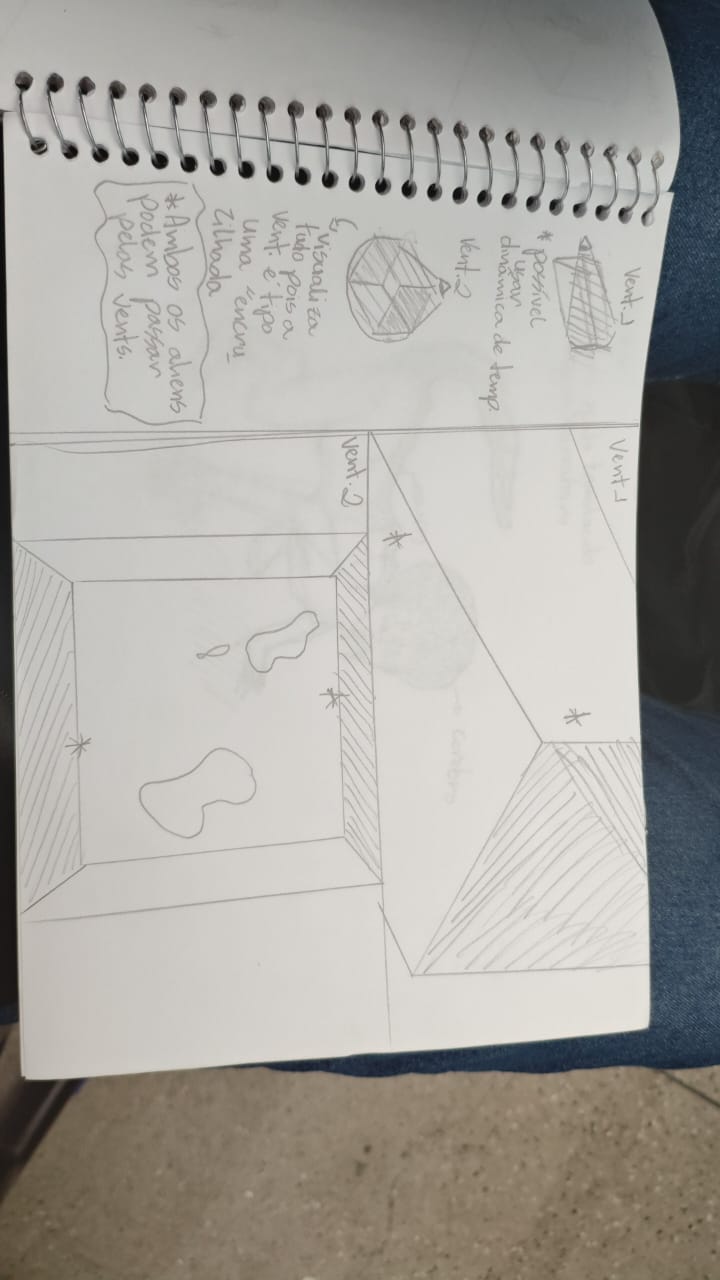 Vent.1
* possível
usar
dinâmica de temp.
Vent.2
↳ visualiza
tudo pois a
vent. é tipo
uma "encru-
zilhada
* Ambos os aliens
podem passar
pelas vents.
Vent1
*
*
Vent.2
*
*
→ cérebro